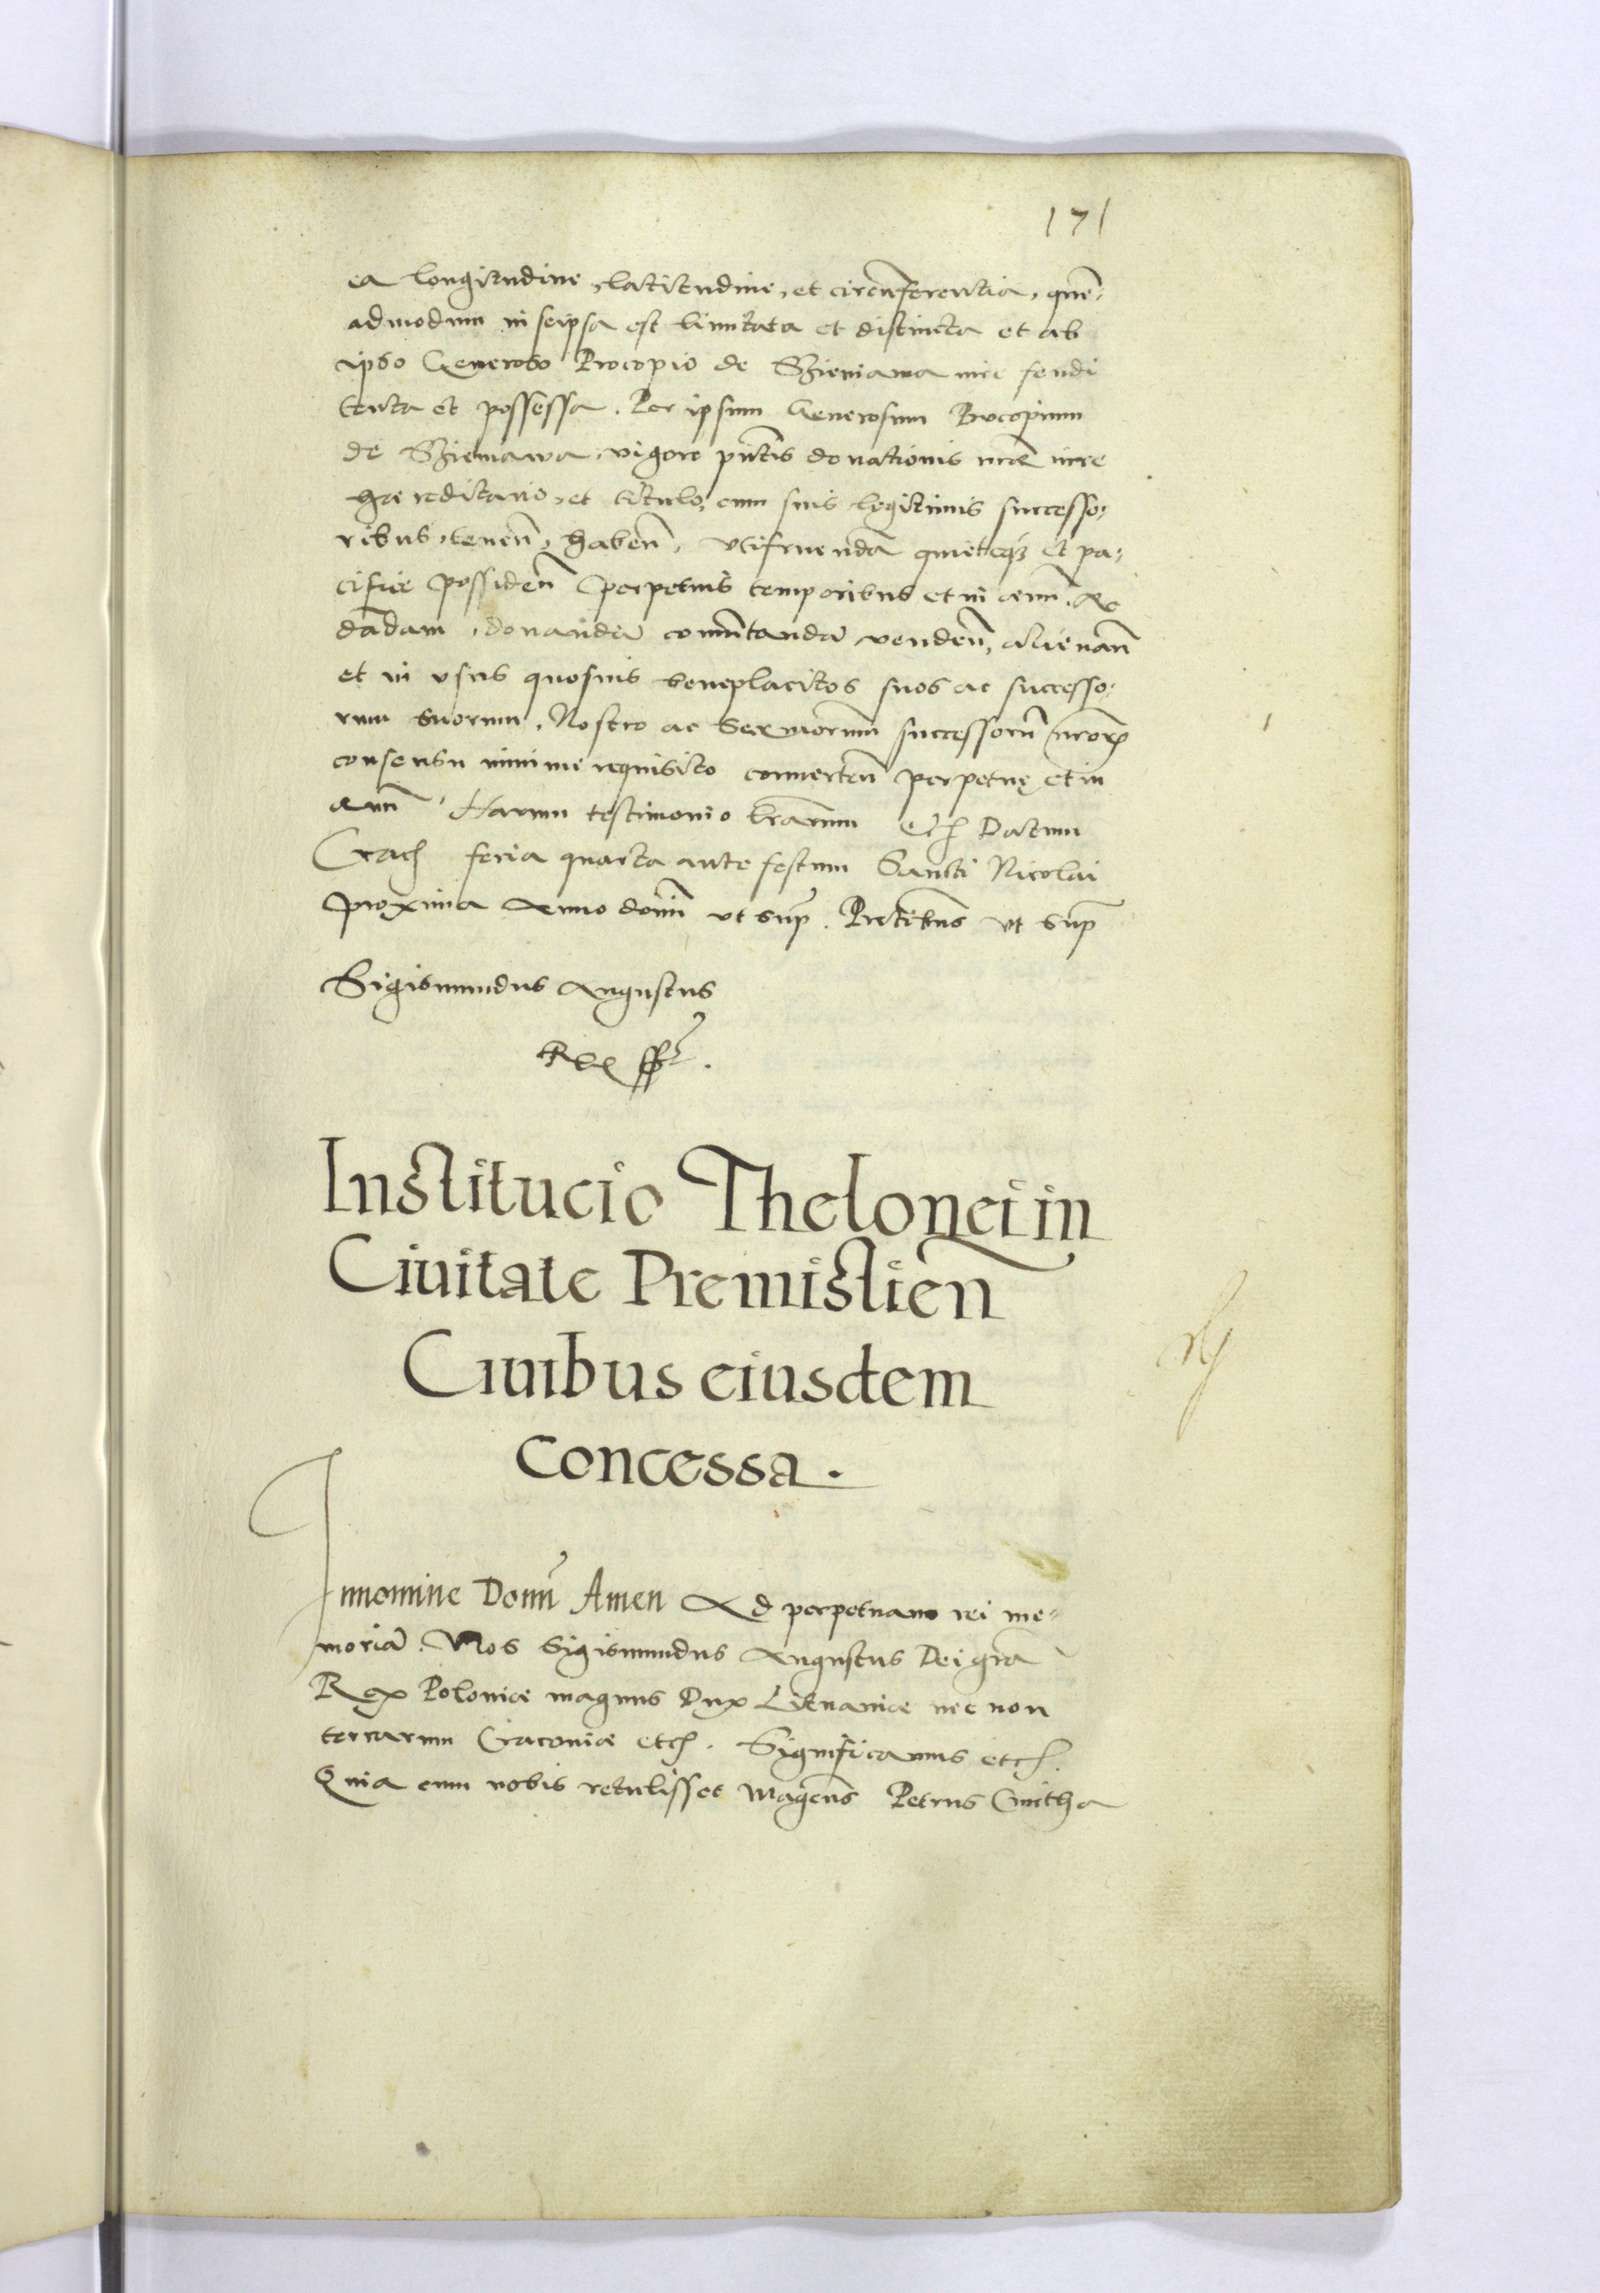 171
ea longitudine, latitudine, et circumferentia, quē-
admodum in seipsa est limitata et distincta et ab
ipso Generoso Procopio de Szieniawa iure feudi
tenta et possessa. Per ipsum Generosum Procopium
de Szieniawa, vigore pn̄tis donationis n̄rae iure
haereditario, et titulo, cum suis legitimis successo-
ribus, tenen̄, haben̄, vtifruendā quieteqꝫ et pa-
cifice possiden̄ perpetuis temporibus et in aeuū. Ac
dādam, donandā comutandā venden̄, alienan̄
et in vsus quosuis beneplacitos suos ac successo-
rum suorum, Nostro ac Serᵐᵒʳum successorū nr̄orꝫ
consensu minime requisito conuerten̄ perpetuę et in
aeuū. Harum testimonio lr̄arum etcꝫ Datum
Cracꝫ feria quarta ante festum Sancti Nicolai
proxima Anno domī vt sup̄. Pn̄tibus vt sup̄
Sigismundus Augustus
Rex ss.
Institucio Thelonei in
Ciuitate Premislien̄
Ciuibus eiusdem
concessa.
In nomine Domī Amen Ad perpetuam rei me-
moriā. Nos Sigismundus Augustus Dei gr̄a
Rex Poloniae magnus Dux Lituaniae nec non
terrarum Cracouiae etcꝫ. Significamus etcꝫ.
Quia cum nobis retulisset Magcūs Petrus Cmitha